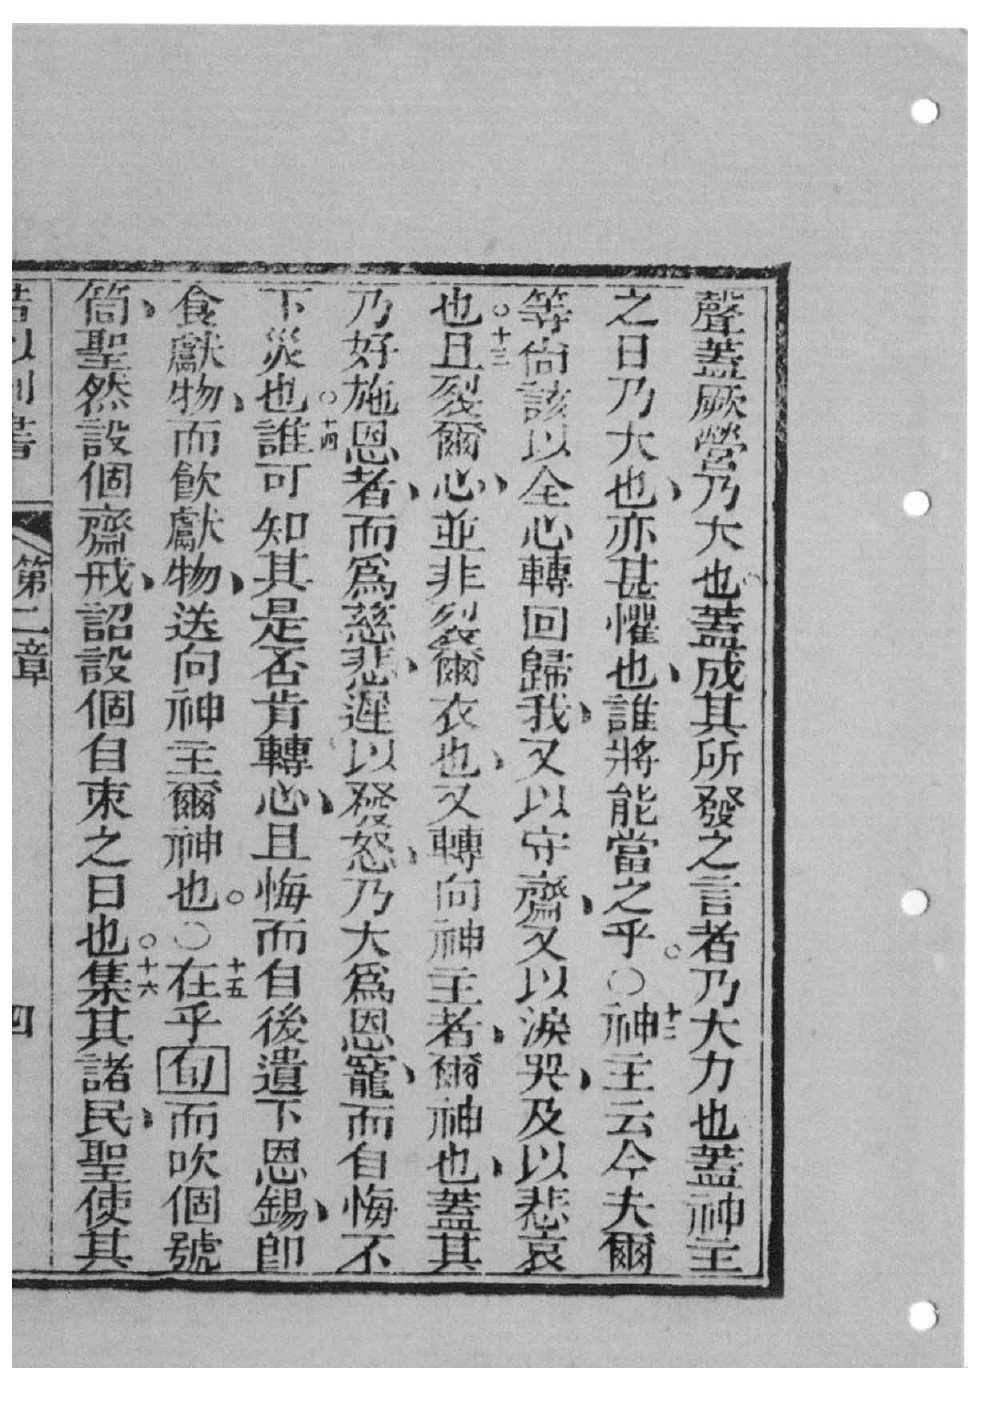 聲蓋厥營乃大也蓋成其所發之言者乃大力也蓋神主
之日乃大也、亦甚懼也、誰將能當之乎。○十二神主云今夫爾
等尙該以全心轉回歸我、又以守齋、又以淚哭、及以悲哀
也○十三且裂爾心、並非裂爾衣也、又轉向神主者、爾神也、蓋其
乃好施恩者、而爲慈悲、遲以發怒、乃大爲恩寵、而自悔不
下災也○十四誰可知其是否肯轉心、且悔而自後遺下恩錫、卽
食獻物、而飮獻物、送向神主爾神也。○十五在乎旬而吹個號
筒、聖然設個齋戒、詔設個自束之日也○十六集其諸民、聖使其
第二章
四